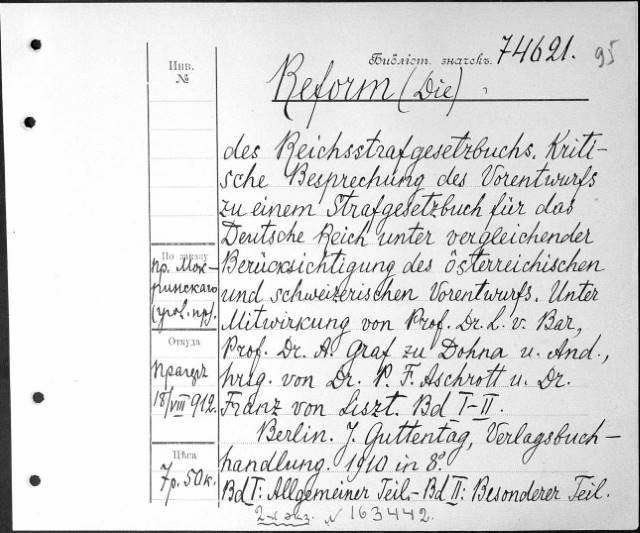 Библіот. значекъ. 74621. 95
Инв.
№
Reform (Die)
des Reichsstrafgesetzbuchs. Kriti-
sche Besprechung des Vorentwurfs
zu einem Strafgesetzbuch für das
Deutsche Reich unter vergleichender
Berücksichtigung des österreichischen
und schweizerischen Vorentwurfs. Unter
Mitwirkung von Prof. Dr. L. v. Bar,
Prof. Dr. A. Graf zu Dohna u. And.,
hrsg. von Dr. P. F. Aschrott u. Dr.
Franz von Liszt. Bd I-II.
Berlin. J. Guttentag, Verlagsbuch-
handlung. 1910 in 8°.
Bd I: Allgemeiner Teil.- Bd II: Besonderer Teil.
По заказу
пр. Мок-
ринскаго
(угол. пр).
Откуда
Прагеръ
18/VIII 912.
Цѣса
7р. 50к.
2-й экз. № 163442.